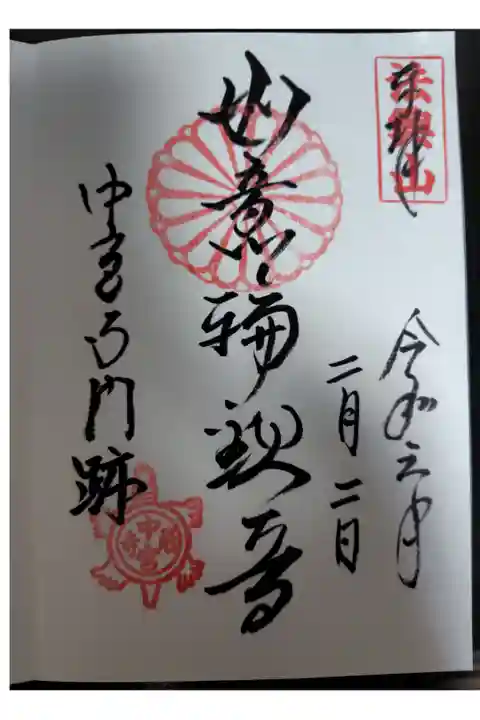 奉拝
法興山
令和六年
二月二日
如意輪観音
中宮寺門跡
中宮寺